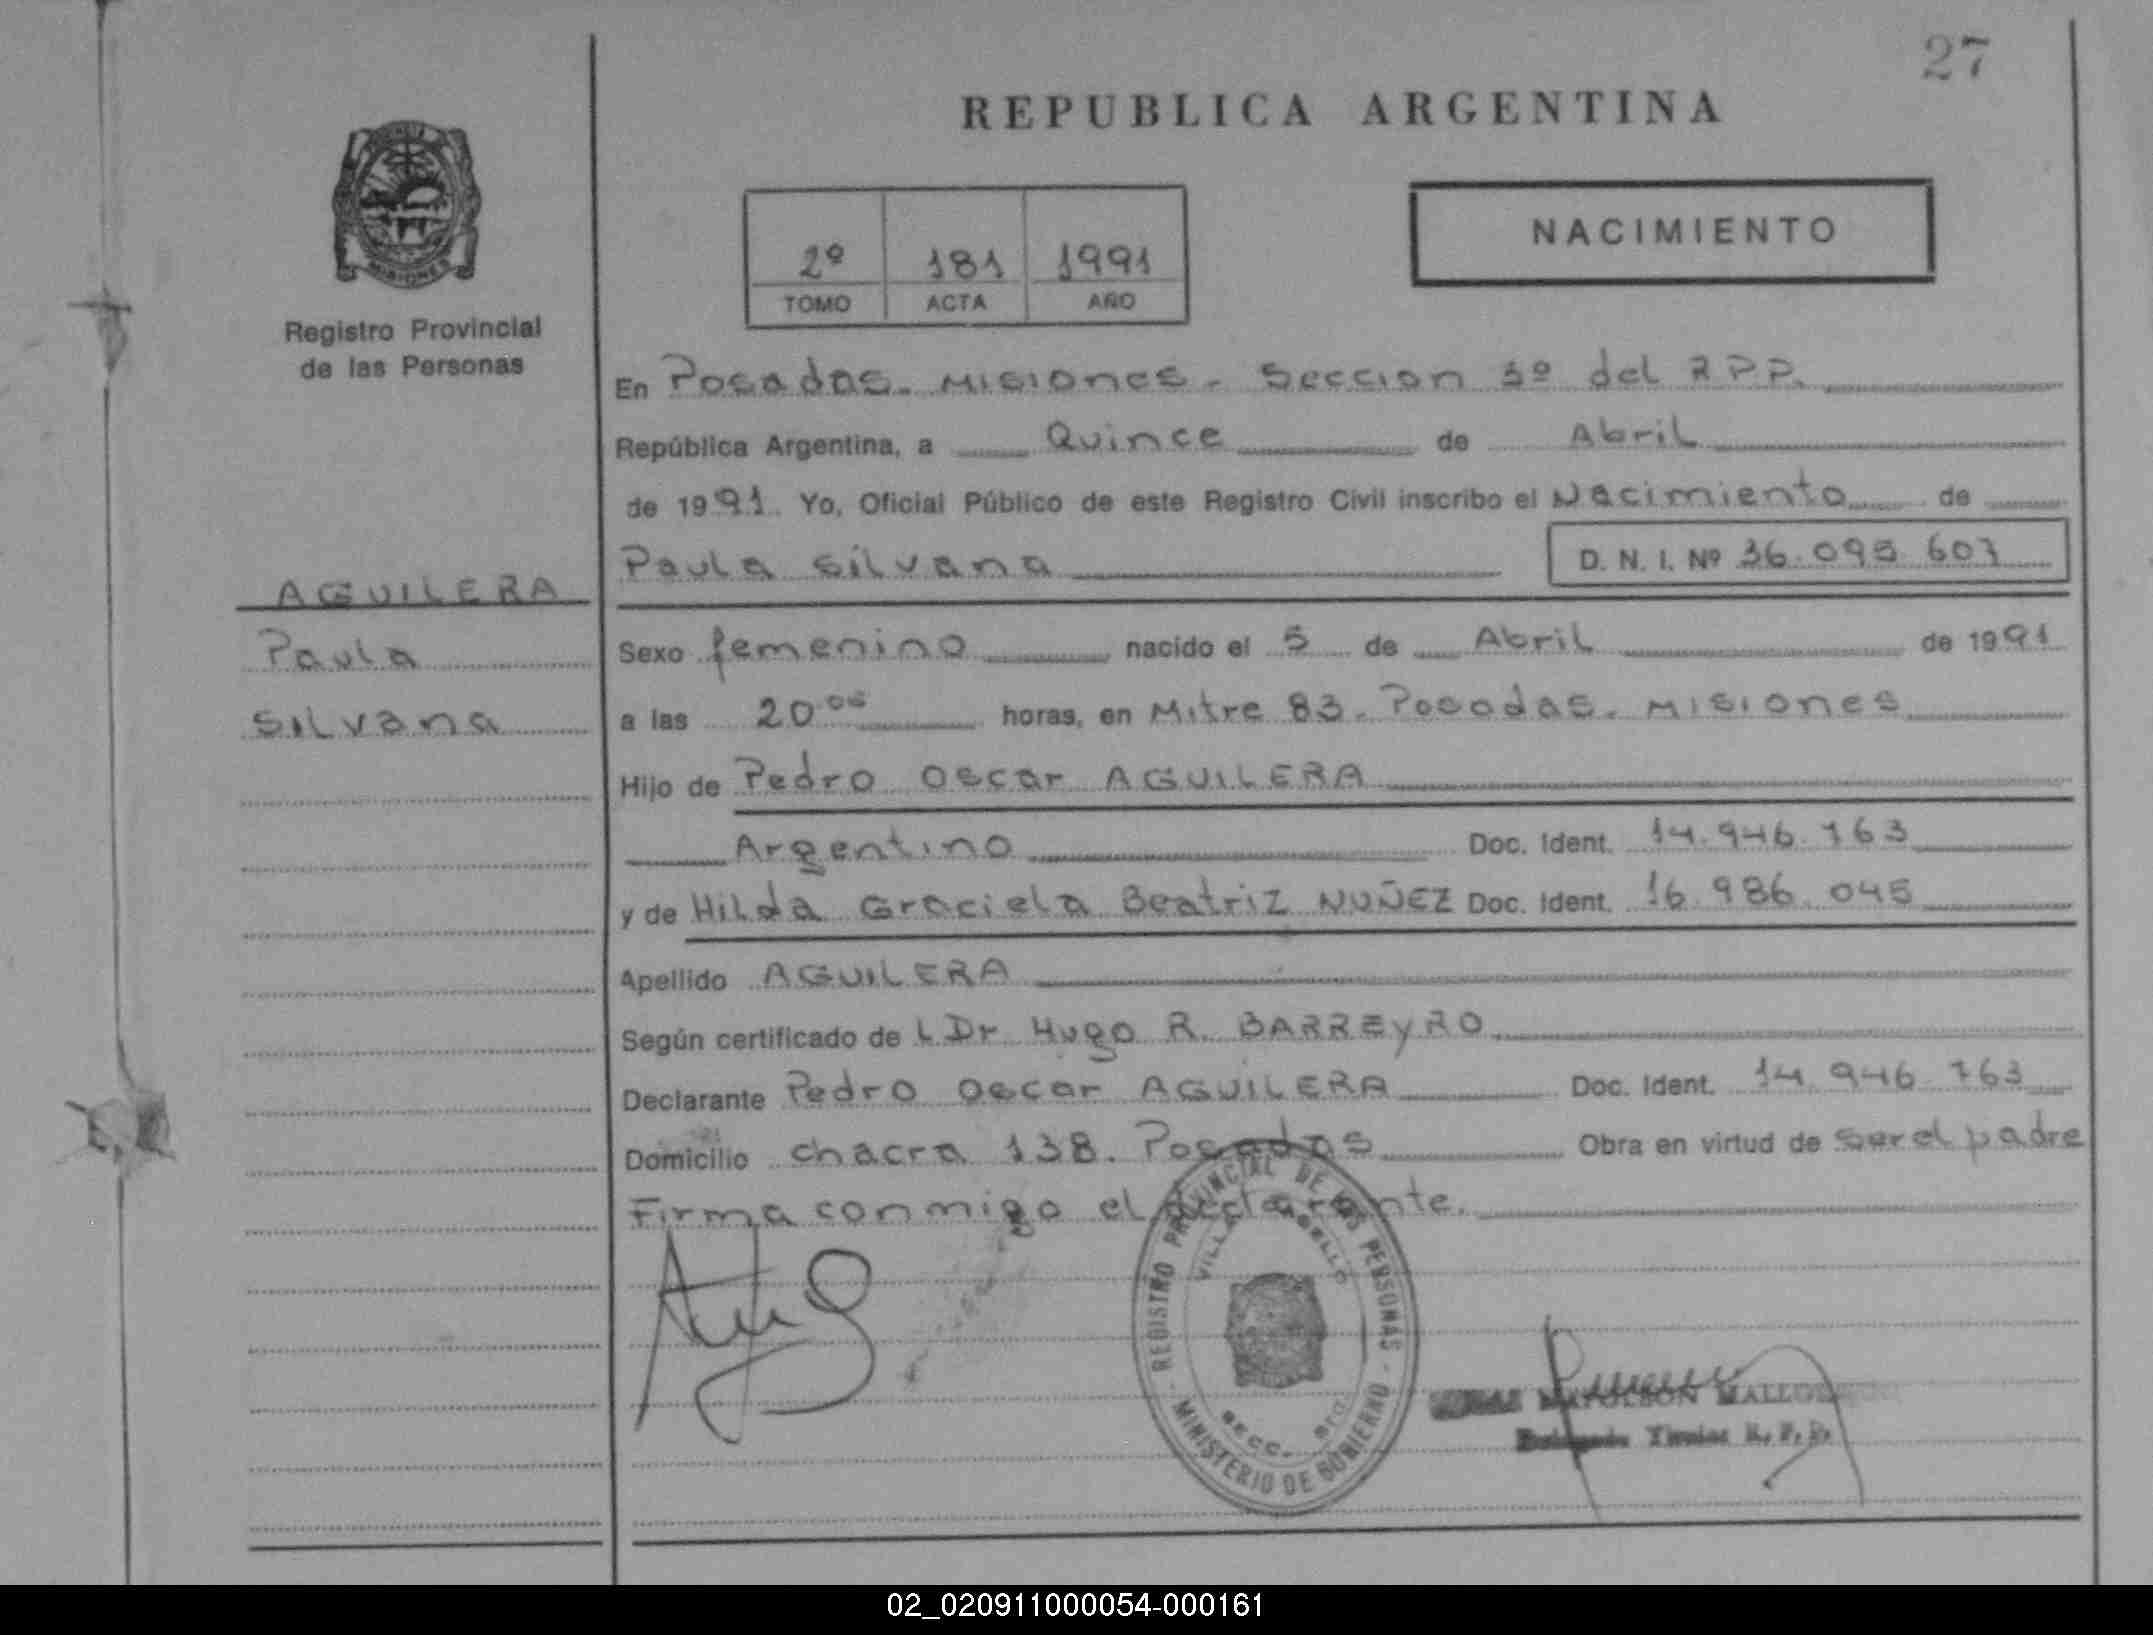 27
REPUBLICA ARGENTINA
NACIMIENTO
2º 181 1991
TOMO ACTA AÑO
Registro Provincial
de las Personas
En Posadas. Misiones. Seccion 3º del R P P.
República Argentina, a Quince de Abril
de 1991 Yo, Oficial Público de este Registro Civil inscribo el Nacimiento de
Paula Silvana D. N. I. Nº 36.095.607
AGUILERA
Paula
Silvana
Sexo femenino nacido el 5 de Abril de 1991
a las 20 horas, en Mitre 83. Posadas. Misiones
Hijo de Pedro Oscar AGUILERA
Argentino Doc. Ident. 14.946.763
y de Hilda Graciela Beatriz NUÑEZ Doc. Ident. 16.986.045
Apellido AGUILERA
Según certificado de L Dr. Hugo R. BARREyRO
Declarante Pedro Oscar AGUILERA Doc. Ident. 14.946.763
Domicilio chacra 138. Posadas Obra en virtud de ser el padre
Firma conmigo el declarante.
REGISTRO PROVINCIAL DE LAS PERSONAS
VILLA
SECC. 3ra.
MINISTERIO DE GOBIERNO
NAPOLEON
Titular R. P. P.
02_020911000054-000161